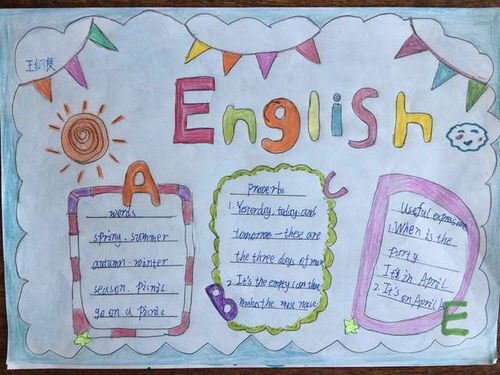 English
A
words
spring. summer
autumn. winter
season. picnic
go on a picnic
B
C
Proverbs
1. Yesterday, today and
tomorrow - these are
the three days of man
2. It's the empty can that
makes the most noise.
Useful expressions
1. When is the
party
It's in April
2. It's on April
E